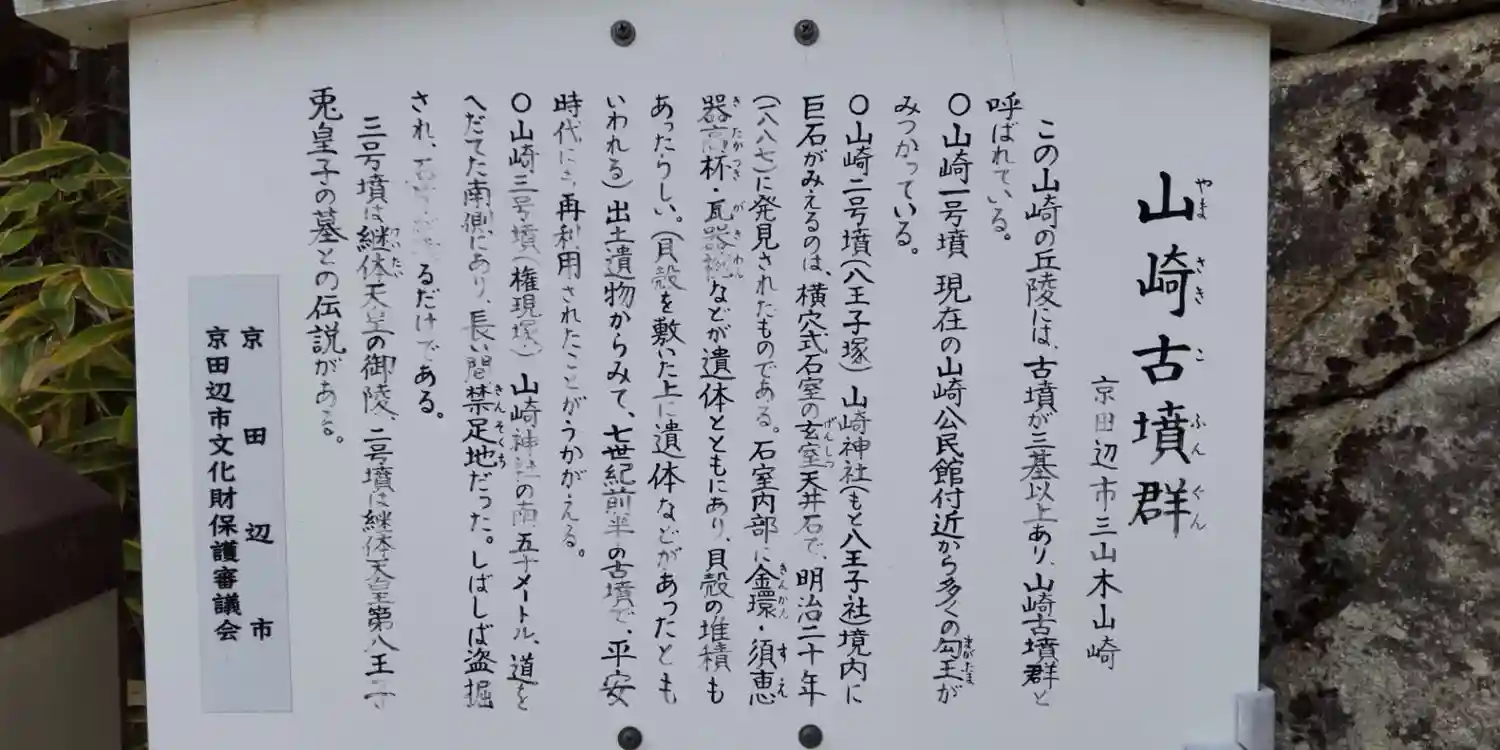 山崎古墳群
やまさきこふんぐん
京田辺市三山木山崎
この山崎の丘陵には、古墳が三基以上あり、山崎古墳群と
呼ばれている。
〇山崎一号墳 現在の山崎公民館付近から多くの勾玉が
まがたま
みつかっている。
〇山崎二号墳(八王子塚) 山崎神社(もと八王子社)境内に
巨石がみえるのは、横穴式石室の玄室天井石で、明治二十年
げんしつ
(一八八七)に発見されたものである。石室内部に金環・須恵
きんかん すえ
器高杯・瓦器椀などが遺体とともにあり、貝殻の堆積も
き たかつき がきわん
あったらしい。(貝殻を敷いた上に遺体などがあったとも
いわれる)出土遺物からみて、七世紀前半の古墳で、平安
時代にも再利用されたことがうかがえる。
〇山崎三号墳(権現塚) 山崎神社の南五十メートル、道を
へだてた南側にあり、長い間禁足地だった。しばしば盗掘
きんそくち
され、るだけである。
三号墳は継体天皇の御陵、二号墳は継体天皇第八王子
けいたい
兎皇子の墓との伝説がある。
京田辺市
京田辺市文化財保護審議会